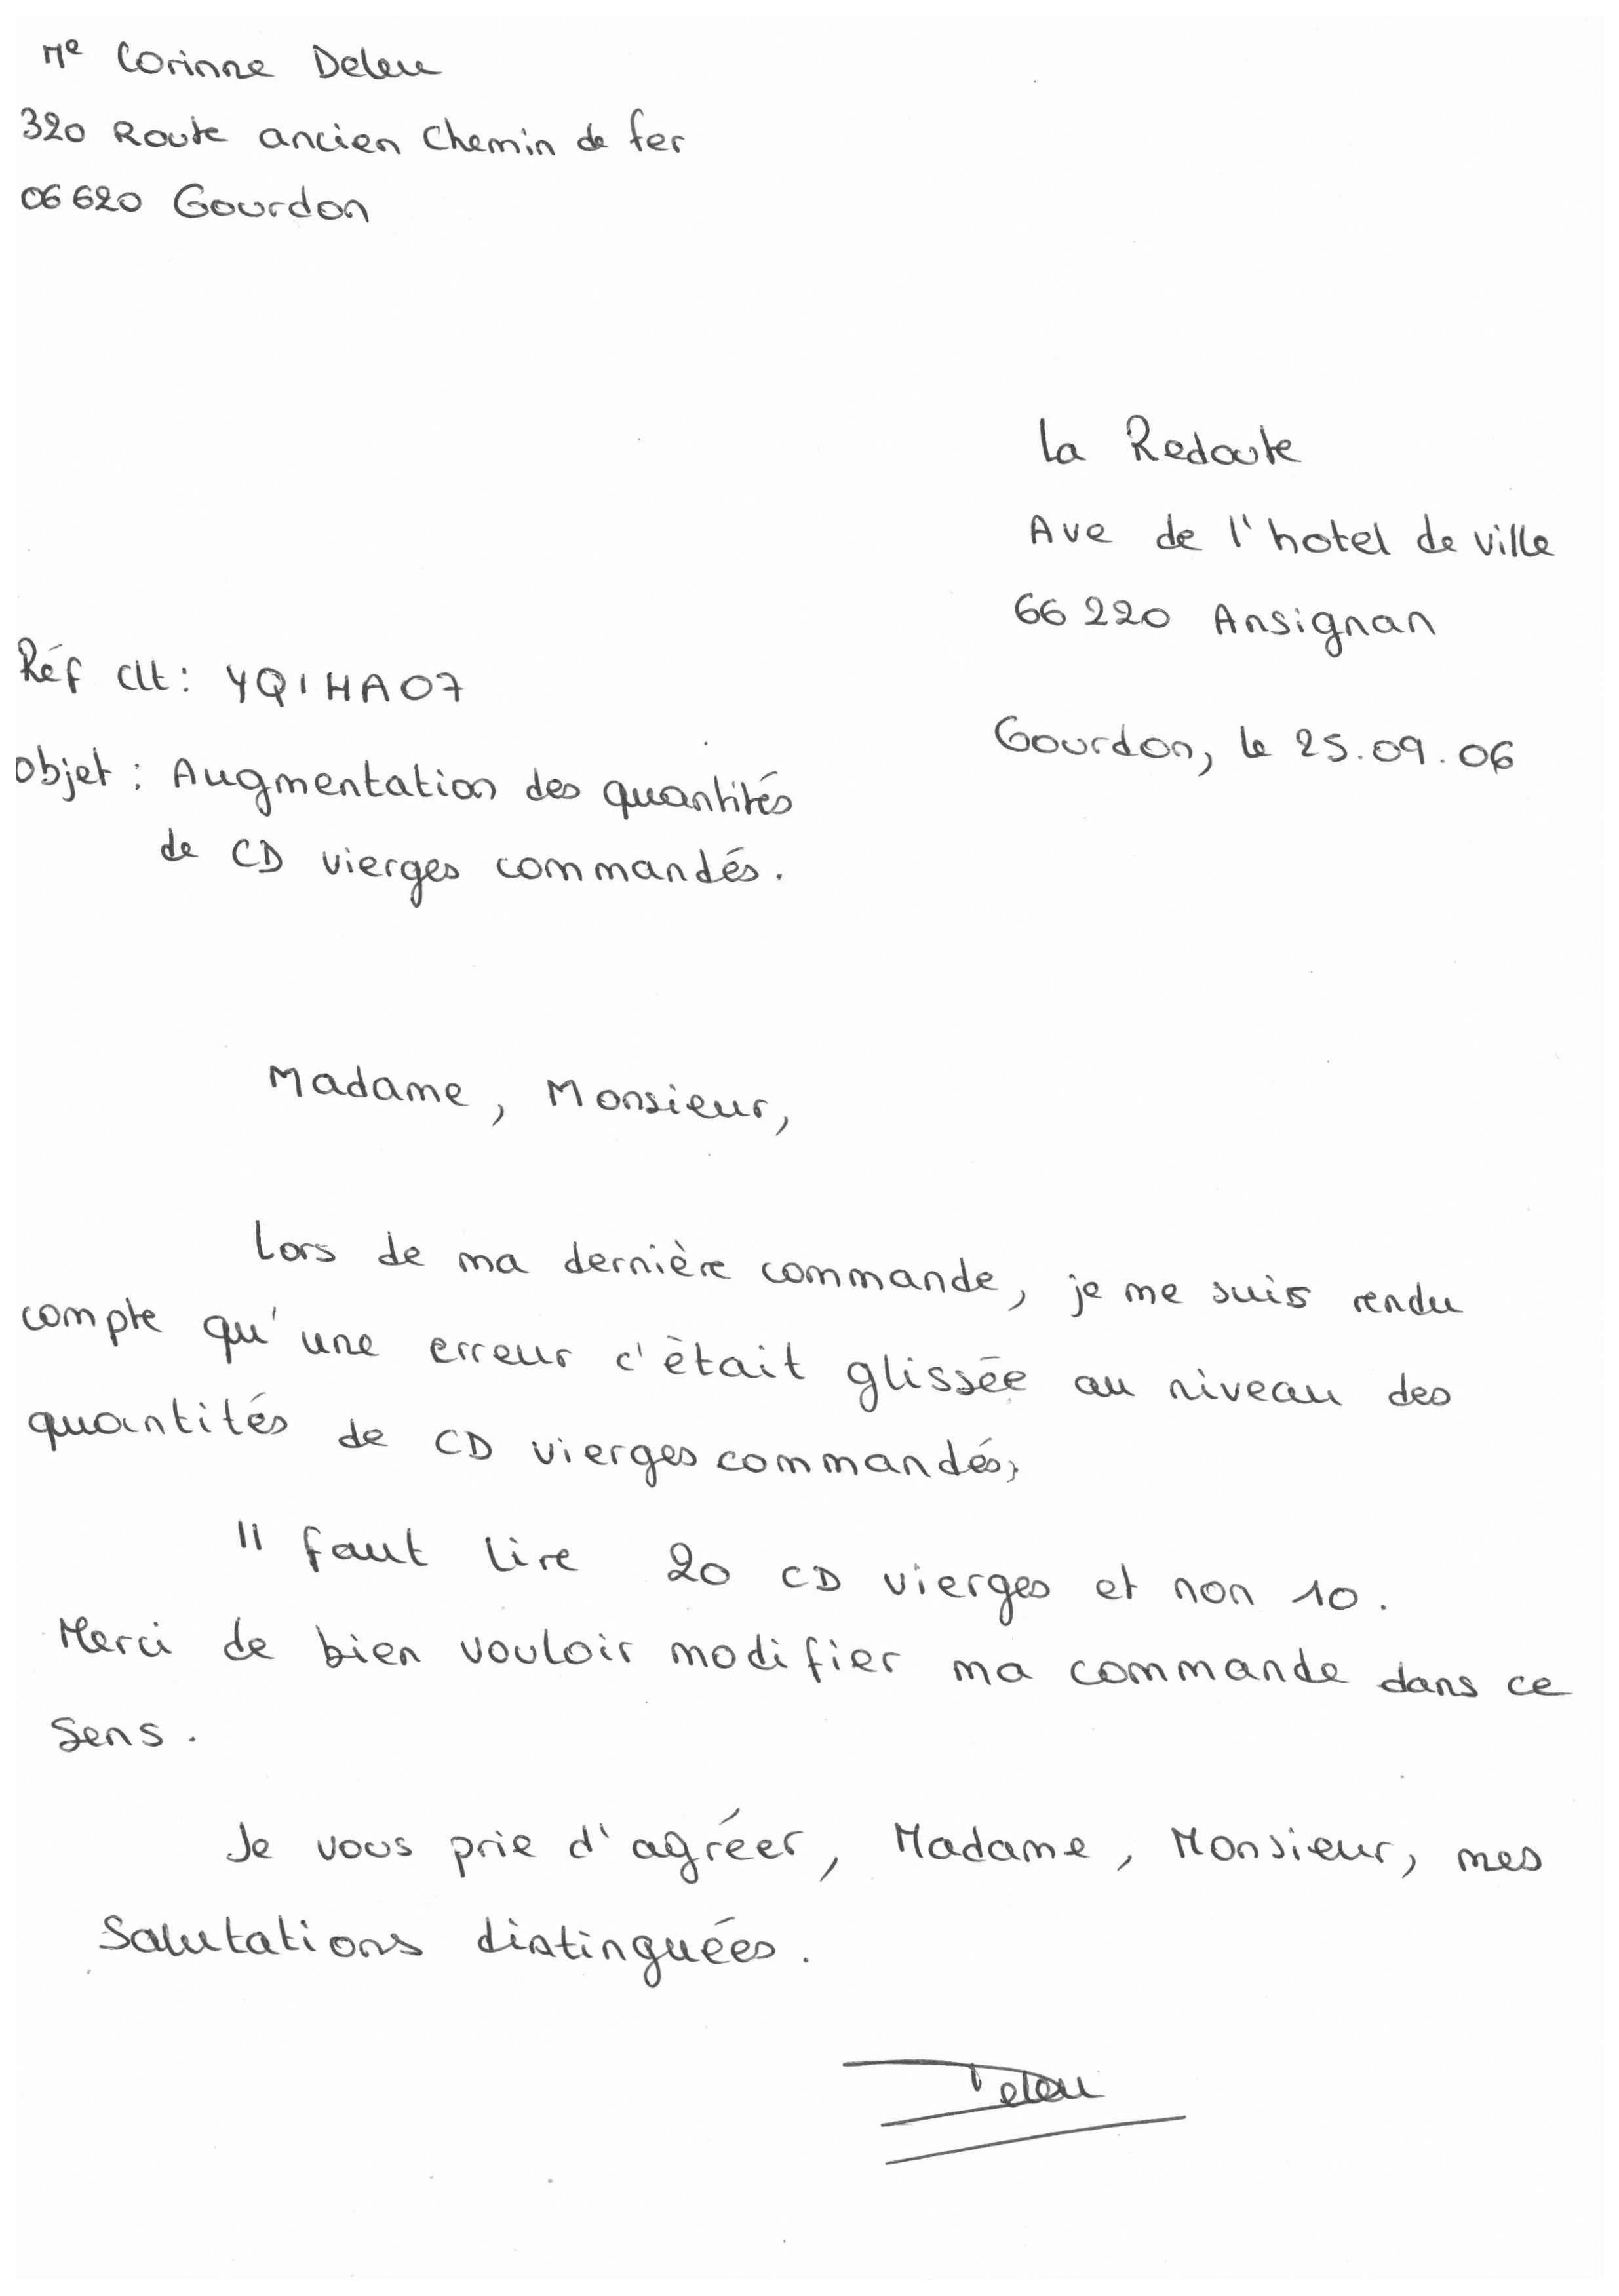 Me Corinne Deleu
320 Route ancien Chemin de fer
06620 Gourdon
La Redoute
Ave de l'hotel de ville
66220 Ansignan
Réf Clt : YQIHA07
Gourdon, le 25.09.06
Objet : Augmentation des quantités
de CD vierges commandés.
Madame, Monsieur,
Lors de ma dernière commande, je me suis rendu
compte qu'une erreur c'ètait glissée au niveau des
quantités de CD vierges commandés,
Il faut lire 20 CD vierges et non 10.
Merci de bien vouloir modifier ma commande dans ce
sens.
Je vous prie d'agréer, Madame, Monsieur, mes
Salutations distinguées.
Deleu